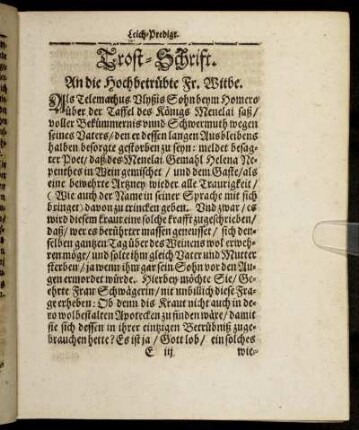 Leich-Predigt.
Trost-Schrifft.
An die Hochbetrübte Fr. Witbe.
Als Telemachus Vlyßis Sohn beym Homero
über der Taffel des Königs Menelai saß/
voller Bekümmernis vnnd Schwermuth wegen
seines Vaters/ den er dessen langen Ausbleibens
halben besorgte gestorben zu seyn: meldet besag-
ter Poet/ daß des Menelai Gemahl Helena Ne-
penthes in Wein gemischet/ und dem Gaste/ als
eine bewehrte Artzney wieder alle Traurigkeit/
(Wie auch der Name in seiner Sprache mit sich
bringet) davon zu trincken geber. Vnd zwar/ es
wird diesem kraut eine solche krafft zugeschrieben/
daß/ wer es berührter massen geneusset/ sich den-
selben gantzen Tag über des Weinens wol erweh-
ren möge/ und solte ihm gleich Vater und Mutter
sterben/ ja wenn ihm gar sein Sohn vor den Au-
gen ermordet würde. Hierbey möchte Sie/ Ge-
ehrte Fraw Schwägerin/ nit unbillich diese Fra-
ge erheben: Ob denn dis Kraut nicht auch in de-
ro wolbestalten Apotecken zu finden wäre/ damit
sie sich dessen in ihrer eintzigen Betrübniß zuge-
brauchen hette? Es ist ja/ Gott lob/ ein solches
E iij wit-